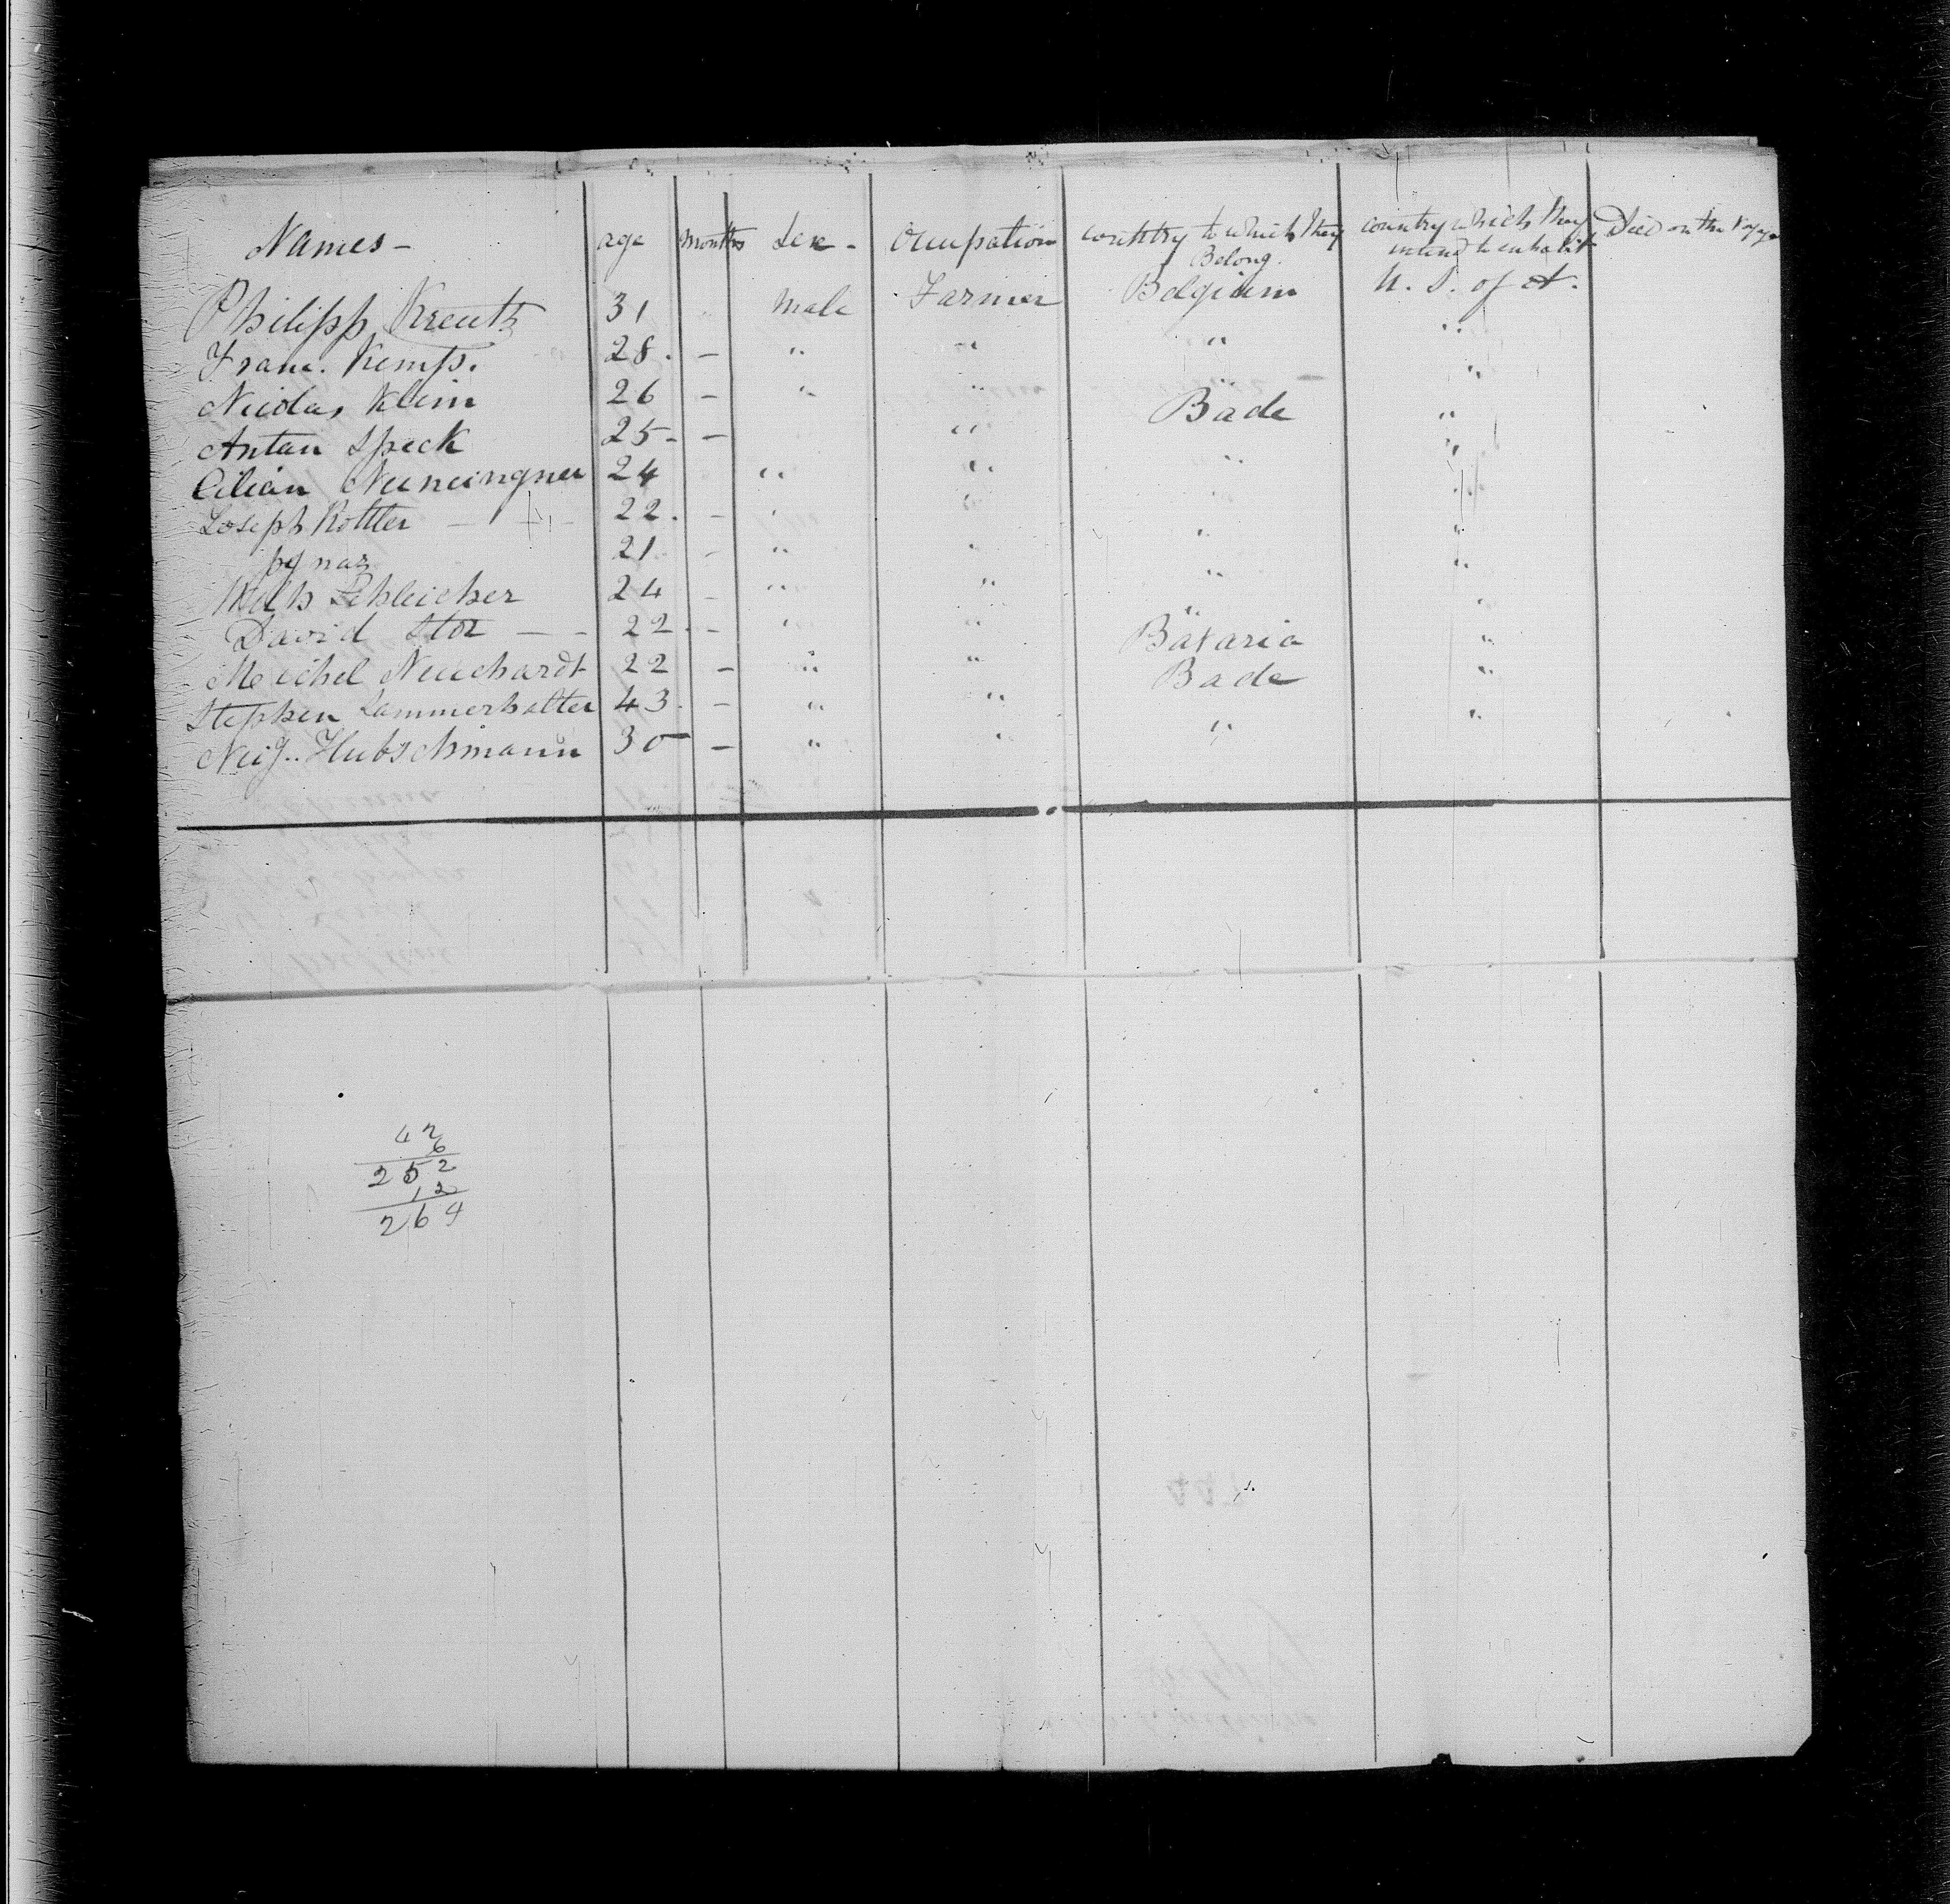 Names - age months Sex - Occupation country to which they Belong. country which they intend to inhabit Died on the Voyage
Philipp Kreutz 31 Male Farmer Belgium U. S. of A.
Franc. Kemp. 28. - " " " "
Nicolas Klein 26 - " " " "
Antan Speck 25- - " Bade "
Cilian Neuningner 24 " " " "
Joseph Kottler - 22. - " " " "
Ignaz 21 - " " " "
Schleicher 24 - " " " "
David Stoz - - 22. - " " " "
Meichel Neuchardt 22 - " " Bavaria "
Stephen Lammerhalter 43. - " " Bade "
Hubschmann 30 - " " " "
42
6
252
12
264